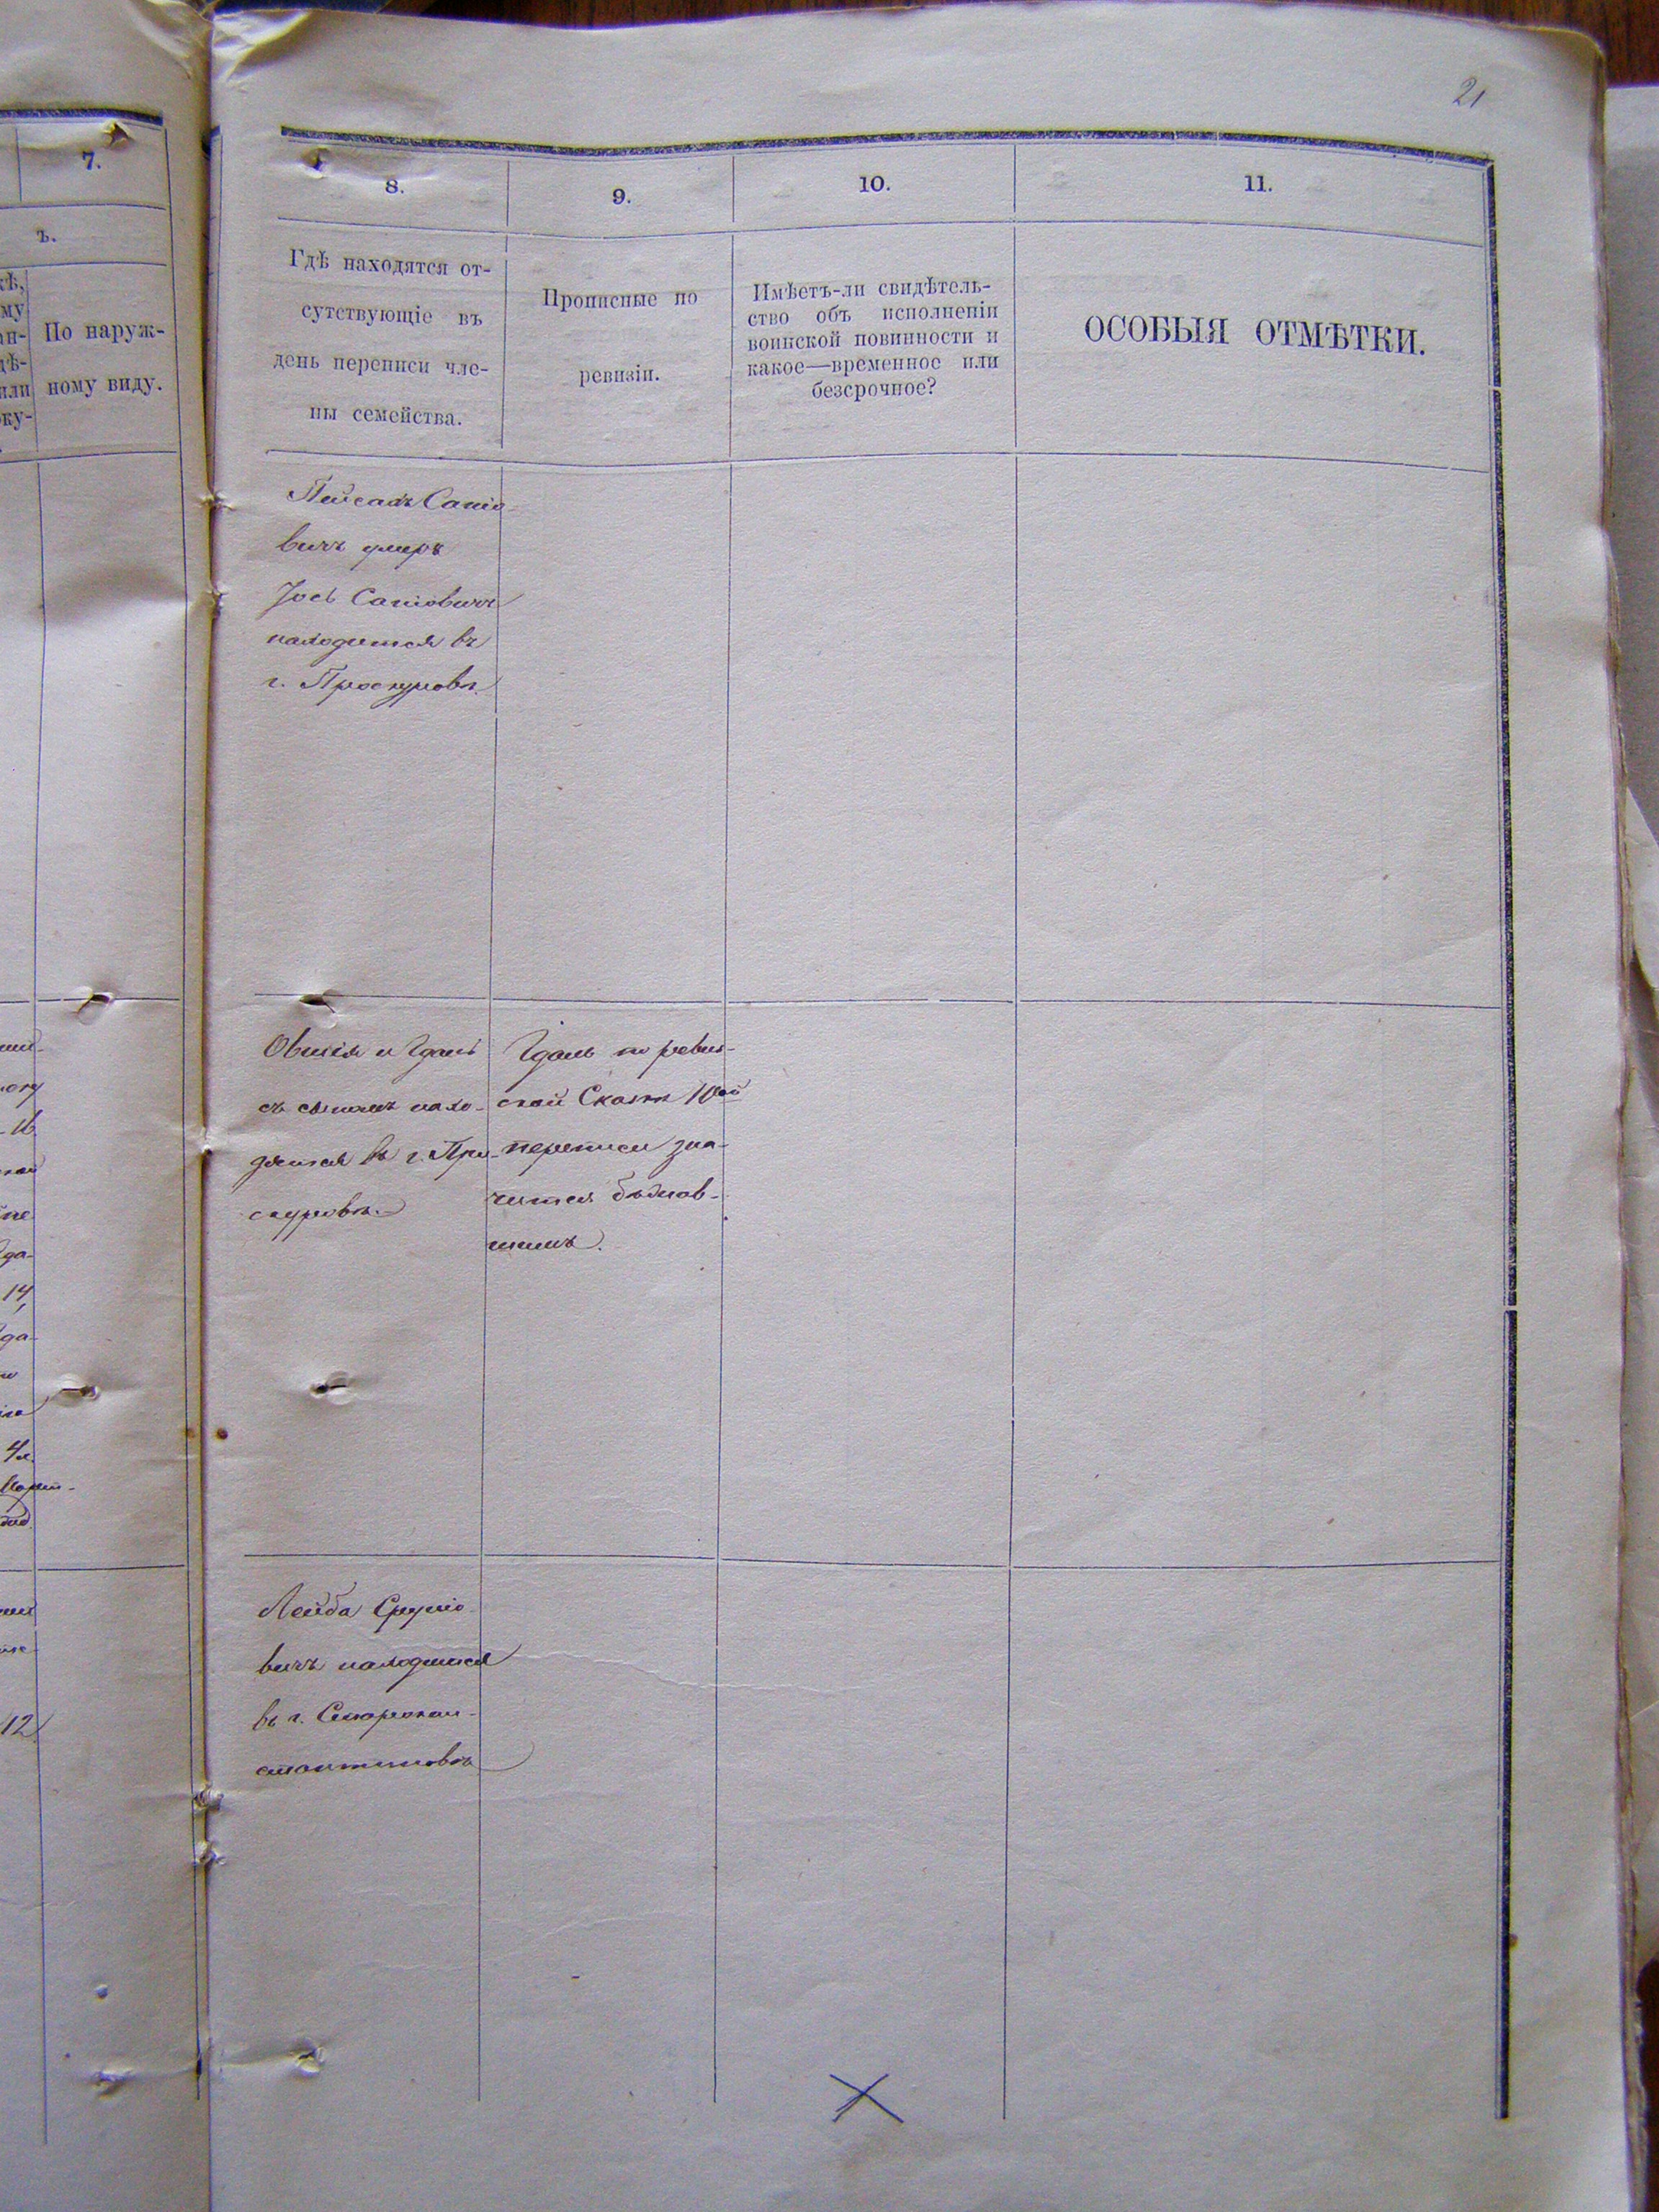 21
7.
ъ.
По наруж-
ному виду.
8.
9.
10.
11.
Гдѣ находятся от-
сутствующіе въ
день переписи чле-
ны семейства.
Прописные по
ревизіи.
Имѣетъ-ли свидѣтель-
ство объ исполненіи
воинской повинности и
какое—временное или
безсрочное?
ОСОБЫЯ ОТМѢТКИ.
Пейсахъ Саніо-
вичъ умеръ
Іось Саніовичъ
находится въ
г. Проскуровѣ.
Овшія и Гдаль
съ сыномъ нахо-
дятся въ г. Про-
скуровѣ.
Гдаль по ревиз-
ской Сказкѣ 10ой
переписи зна-
чится бѣжав-
шимъ.
Лейба Сруліо-
вичъ находится
въ г. Старокон-
стантиновѣ
14,
12